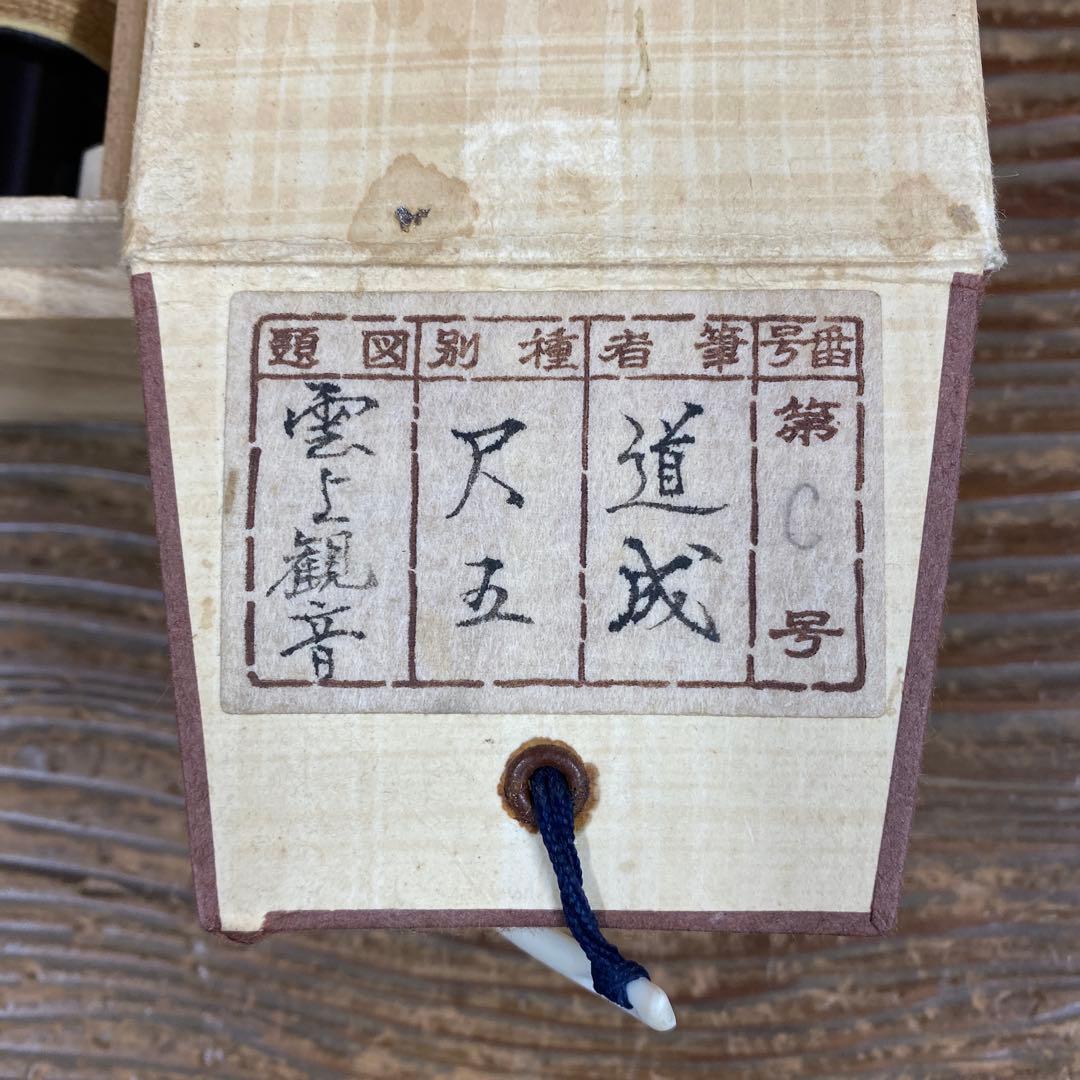 番号
第C号
筆者
道成
種別
尺五
図題
雲上観音